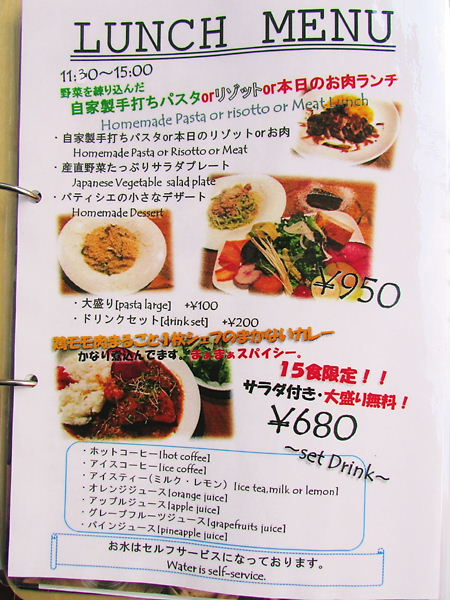 LUNCH MENU
11:30～15:00
野菜を練り込んだ
自家製手打ちパスタorリゾットor本日のお肉ランチ
Homemade Pasta or risotto or Meat Lunch
・自家製手打ちパスタor本日のリゾットorお肉
Homemade Pasta or Risotto or Meat
・産直野菜たっぷりサラダプレート
Japanese Vegetable salad plate
・パティシエの小さなデザート
Homemade Dessert
¥950
・大盛り[pasta large] +¥100
・ドリンクセット[drink set] +¥200
鶏モモ肉まるごと1枚シェフのまかないカレー
かなり煮込んでます。まぁまぁスパイシー。
15食限定！！
サラダ付き・大盛り無料！
¥680
～set Drink～
・ホットコーヒー[hot coffee]
・アイスコーヒー[ice coffee]
・アイスティー(ミルク・レモン) [ice tea,milk or lemon]
・オレンジジュース[orange juice]
・アップルジュース[apple juice]
・グレープフルーツジュース[grapefruits juice]
・パインジュース[pineapple juice]
お水はセルフサービスになっております。
Water is self-service.